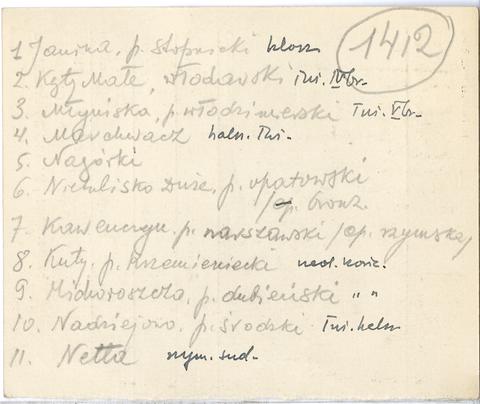 1412
1 Janina, p. stopnicki
2. Kąty Małe, włodawski Tni. IV br-
3. Młyniska, p. włodzimierski Tni. V br-
4. Marchwacz haln. Tni-
5. Nagórki
6. Niemlisko Duże, p. opatowski
/ep. bronz.
7. Kawenczyn. p. warszawski /ep. rzymska/
8. Kuty. p. Krzemieniecki neol. kość.
9. p. dubieński " "
10. Nadziejowo. p. średzki Tni. heln
11. Netta rzym. sud-